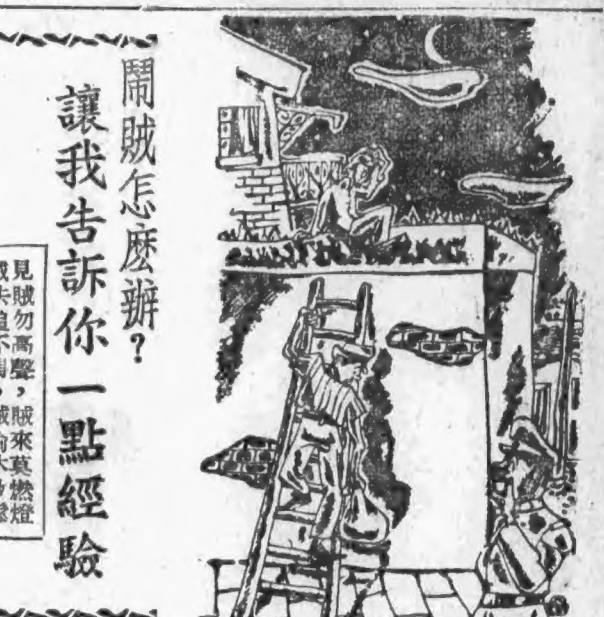 鬧賊怎麽辦？
讓我告訴你一點經驗
見賊勿高聲，賊來莫燃燈